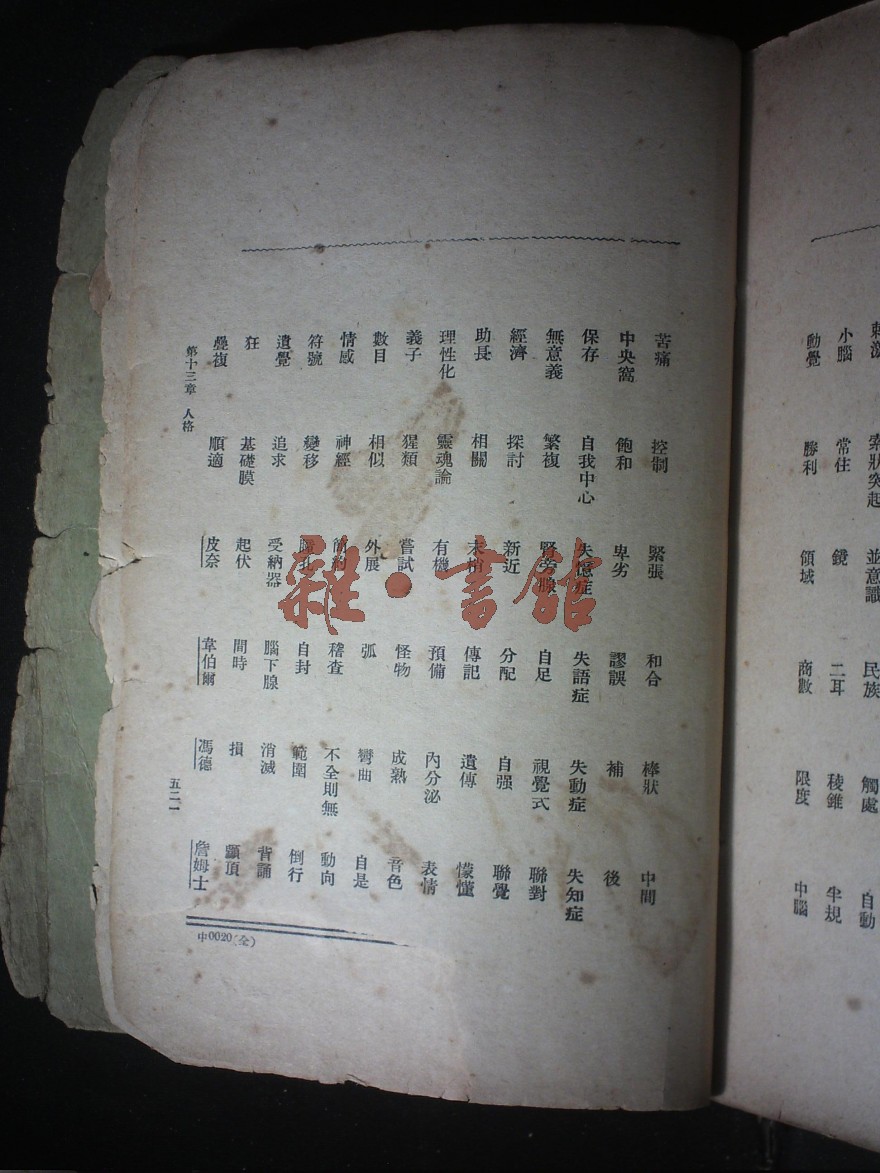 刺激 索狀突起 並意識 民族 觸處 自動
小腦 常住 鏡 二耳 稜錐 半規
動覺 勝利 領域 商數 限度 中腦
苦痛 控制 緊張 和合 棒狀 中間
中央窩 飽和 卑劣 謬誤 補 後
保存 自我中心 失憶症 失語症 失動症 失知症
無意義 繁複 腎旁腺 自足 視覺式 聯對
經濟 探討 新近 分配 自强 聯覺
助長 相關 末梢 傳記 遺傳 懞懂
理性化 靈魂論 有機 預備 內分泌 表情
義子 猩類 嘗試 怪物 成熟 音色
數目 相似 外展 弧 彎曲 自是
情感 神經 簡約 稽查 不全則無 動向
符號 變移 瞳孔 自封 範圍 倒行
遺覺 追求 受納器 腦下腺 消滅 背誦
狂 基礎膜 起伏 間時 損
疊複 順適 皮奈 韋伯爾 馮德 詹姆士
第十三章 人格 五二一
中0020(全)
雜·書館